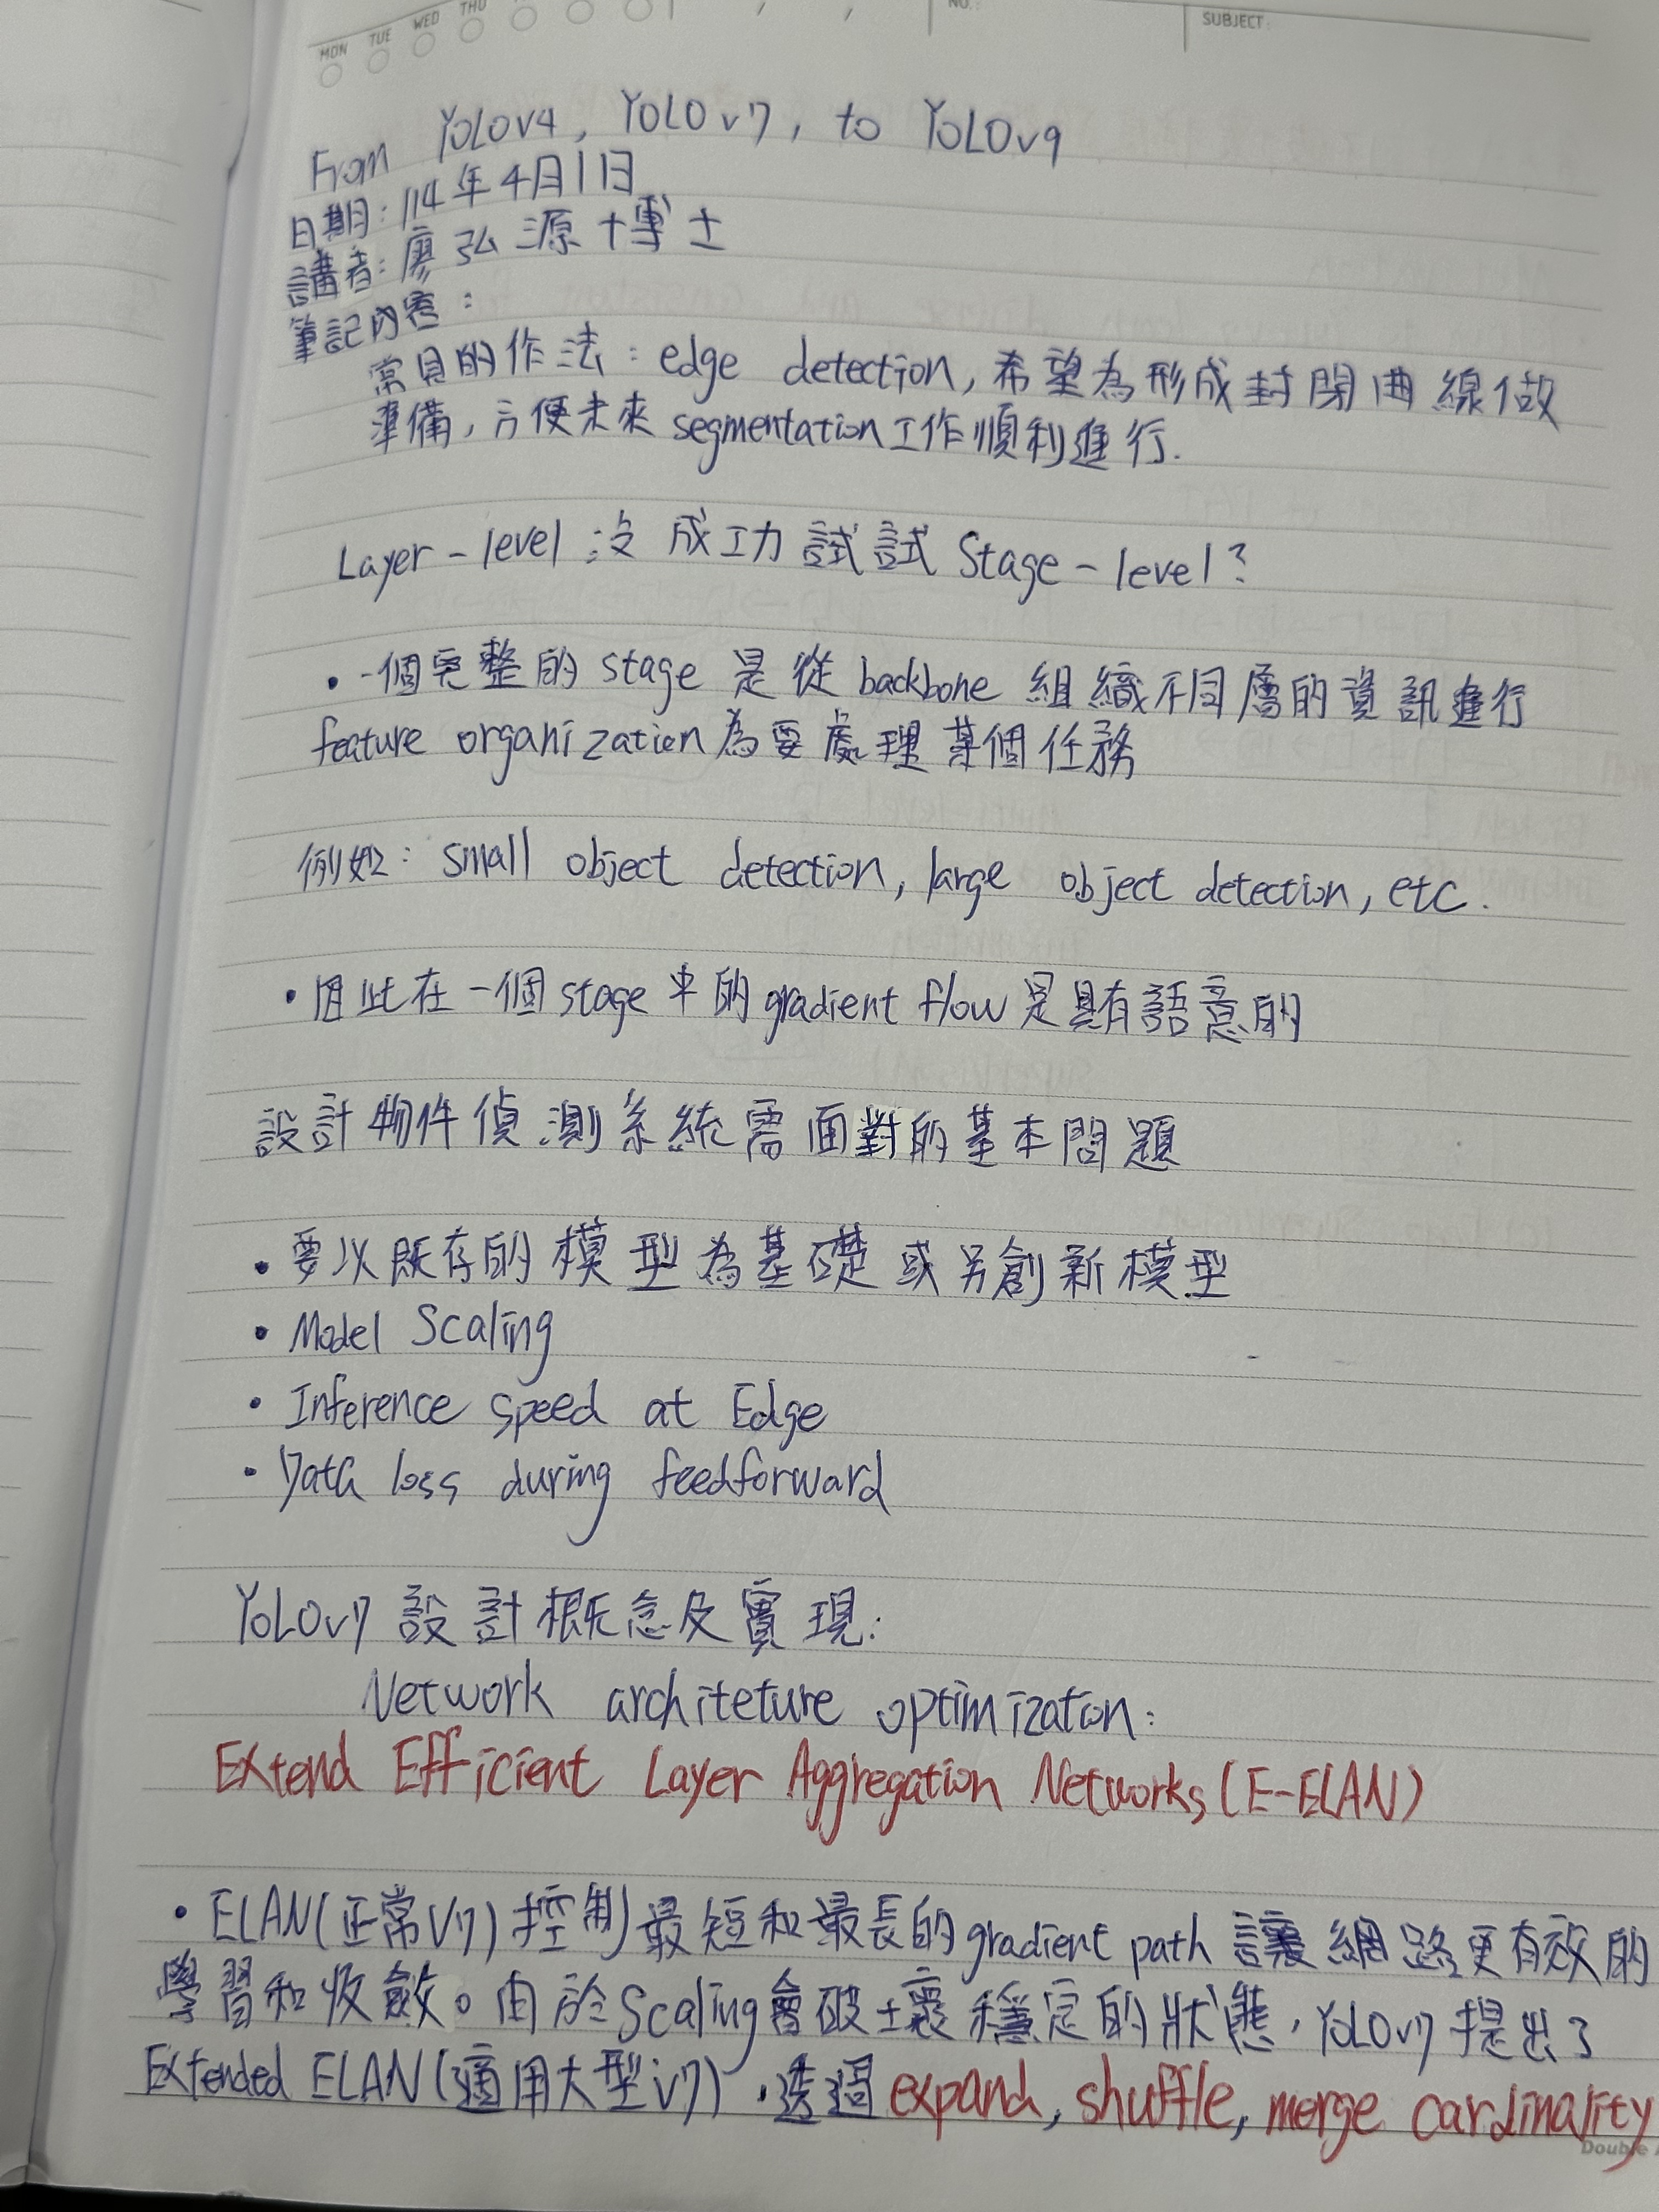 MON TUE WED THU NO.: SUBJECT:
From YOLOv4, YOLOv7, to YOLOv9
日期:114年4月1日
講者:廖弘源博士
筆記內容:
常見的作法:edge detection,希望為形成封閉曲線做
準備,方便未來segmentation工作順利進行.
Layer-level沒成功試試Stage-level?
•一個完整的stage是從backbone組織不同層的資訊進行
feature organization為要處理某個任務
例如:small object detection, large object detection, etc.
•因此在一個stage中的gradient flow是具有語意的
設計物件偵測系統需面對的基本問題
•要以既存的模型為基礎或另創新模型
•Model Scaling
•Inference speed at Edge
•Data loss during feedforward
YOLOv7設計概念及實現:
Network architeture optimization:
Extend Efficient Layer Aggregation Networks(E-ELAN)
•ELAN(正常V7)控制最短和最長的gradient path讓網路更有效的
學習和收斂。由於Scaling會破壞穩定的狀態,YOLOv7提出了
Extended ELAN(適用大型v7),透過expand, shuffle, merge cardinality
Double A